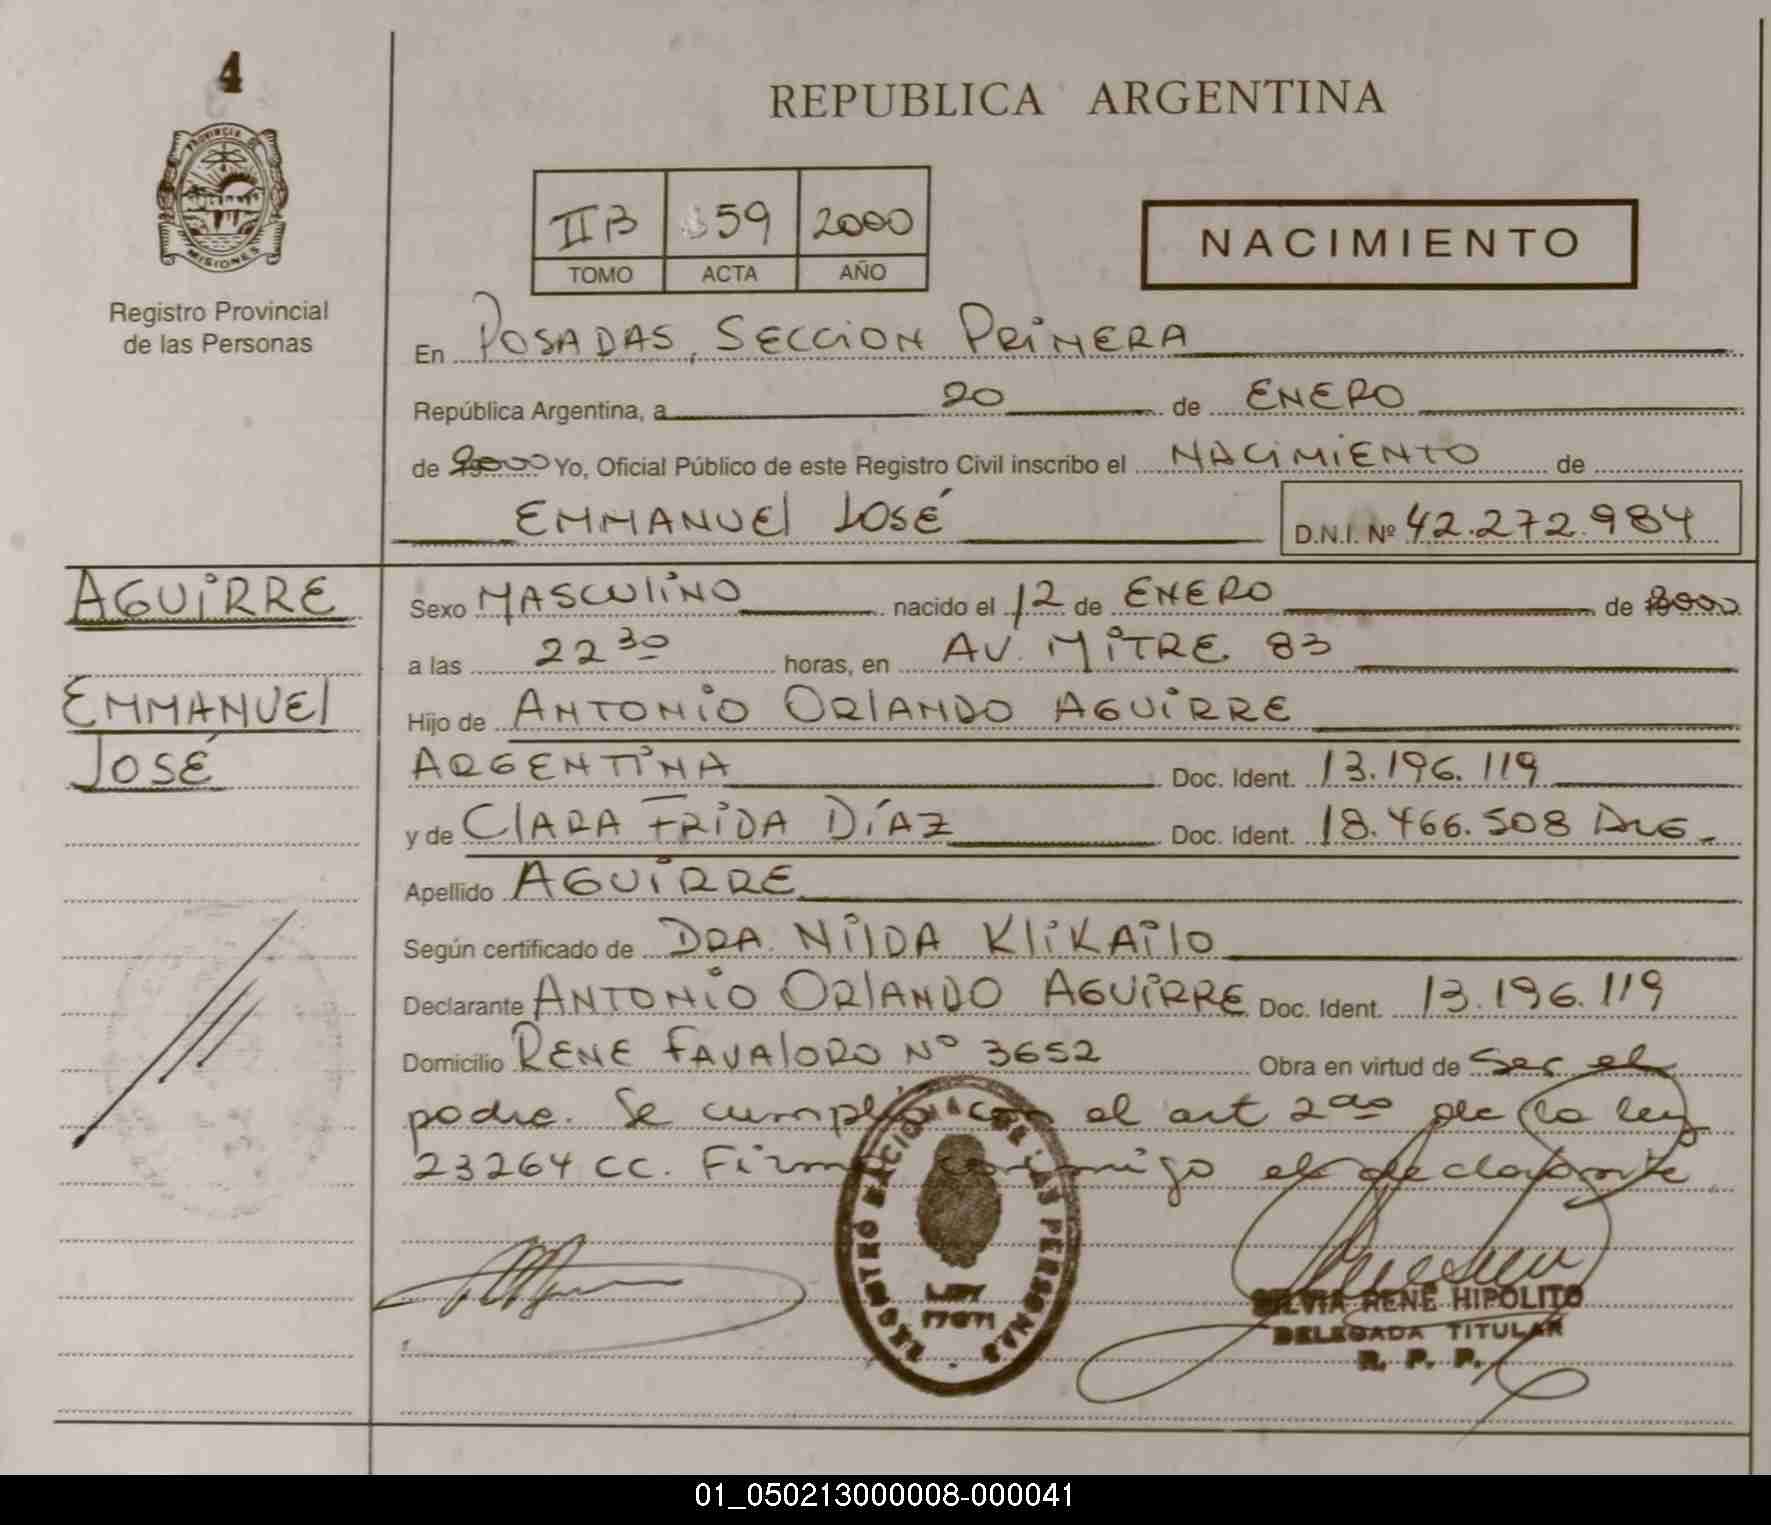 4
PROVINCIA DE
MISIONES
Registro Provincial
de las Personas
REPUBLICA ARGENTINA
IIB 59 2000
TOMO ACTA AÑO
NACIMIENTO
En POSADAS, SECCION PRIMERA
República Argentina, a 20 de ENERO
de 2000 Yo, Oficial Público de este Registro Civil inscribo el NACIMIENTO de
EMMANUEL JOSÉ D.N.I. Nº 42.272.984
AGUIRRE
EMMANUEL
JOSÉ
Sexo MASCULINO nacido el 12 de ENERO de 2000
a las 22 30 horas, en AV. MITRE 83
Hijo de ANTONIO ORLANDO AGUIRRE
ARGENTINA Doc. Ident. 13.196.119
y de CLARA FRIDA DÍAZ Doc. Ident. 18.466.508 ARG.
Apellido AGUIRRE
Según certificado de DRA. NILDA KLIKAILO
Declarante ANTONIO ORLANDO AGUIRRE Doc. Ident. 13.196.119
Domicilio RENE FAVALORO Nº 3652 Obra en virtud de Ser el
padre. Se cumplió con el art 2do de la ley
23264 CC. Firma conmigo el declarante
REGISTRO NACIONAL DE LAS PERSONAS
LEY
17671
SILVIA RENE HIPOLITO
DELEGADA TITULAR
R. P. P.
01_050213000008-000041